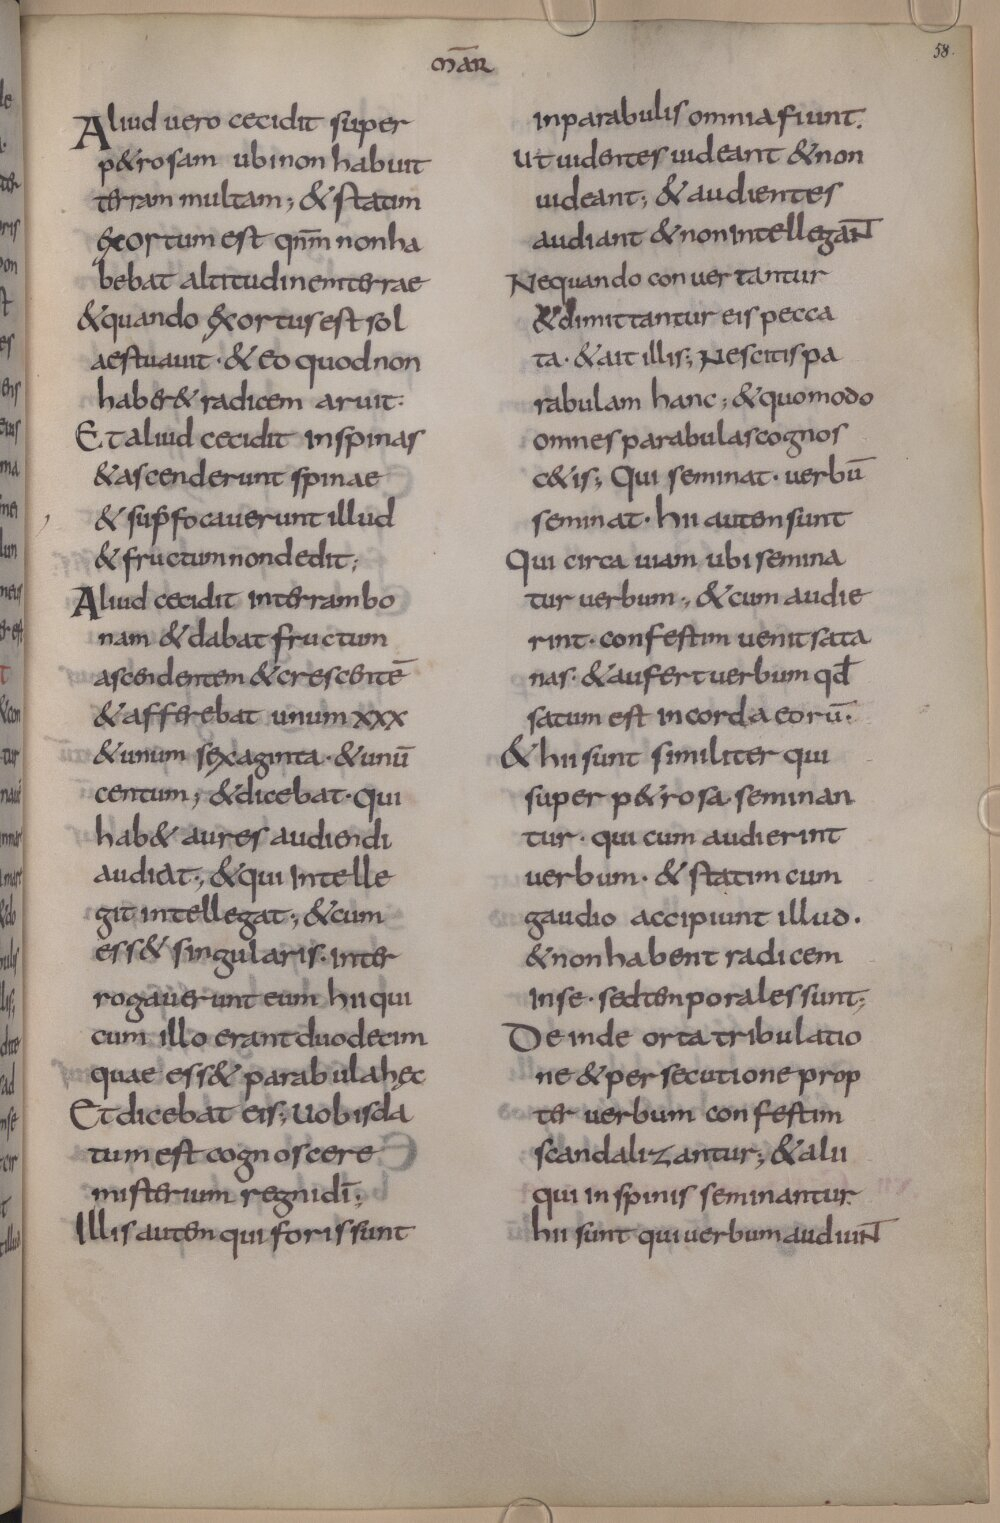 58.
MAR̄
Aliud uero cecidit super
p&rosam ubinon habuit
terram multam; & statim
exortum est qnm̄ nonha
bebat altitudinem terrae
&quando exortus est sol
aestuauit · & eo quod non
haber& radicem aruit·
Et aliud cecidit inspinas
&ascenderunt spinae
& sup̄focauerunt illud
& fructum nondedit;
Aliud cecidit interrambo
nam &dabat fructum
ascendentem &crescentē
&afferebat unum xxx
&unum sexaginta · &unū
centum; &dicebat · qui
hab& aures audiendi
audiat; &qui intelle
git intellegat; &cum
ess& singularis · inter
rogauerunt eum hii qui
cum illo erant duodecim
quae ess& parabula hęc
Et dicebat eis; Uobis da
tum est cognoscere
misterium regni dī;
Illis autem qui foris sunt
inparabulis omnia fiunt.
Ut uidentes uideant & non
uideant; & audientes
audiant & non intellegaN̄
Nequando conuertantur
&dimittantur eis pecca
ta · & ait illis; Nescitis pa
rabulam hanc; &quomodo
omnes parabulas cognos
c&is; Qui seminat · uerbū
seminat · hii autem sunt
Qui circa uiam ubi semina
tur uerbum; &cum audie
rint · confestim uenit sata
nas · & aufert uerbum qđ
satum est incorda eorū ·
& hii sunt similiter qui
super p&rosa seminan
tur · qui cum audierint
uerbum · & statim cum
gaudio accipiunt illud ·
&non habent radicem
inse · sed temporales sunt;
Deinde orta tribulatio
ne & persecutione prop
ter uerbum confestim
scandalizantur; & alii
qui inspinis seminantur
hii sunt qui uerbum audiuN̄